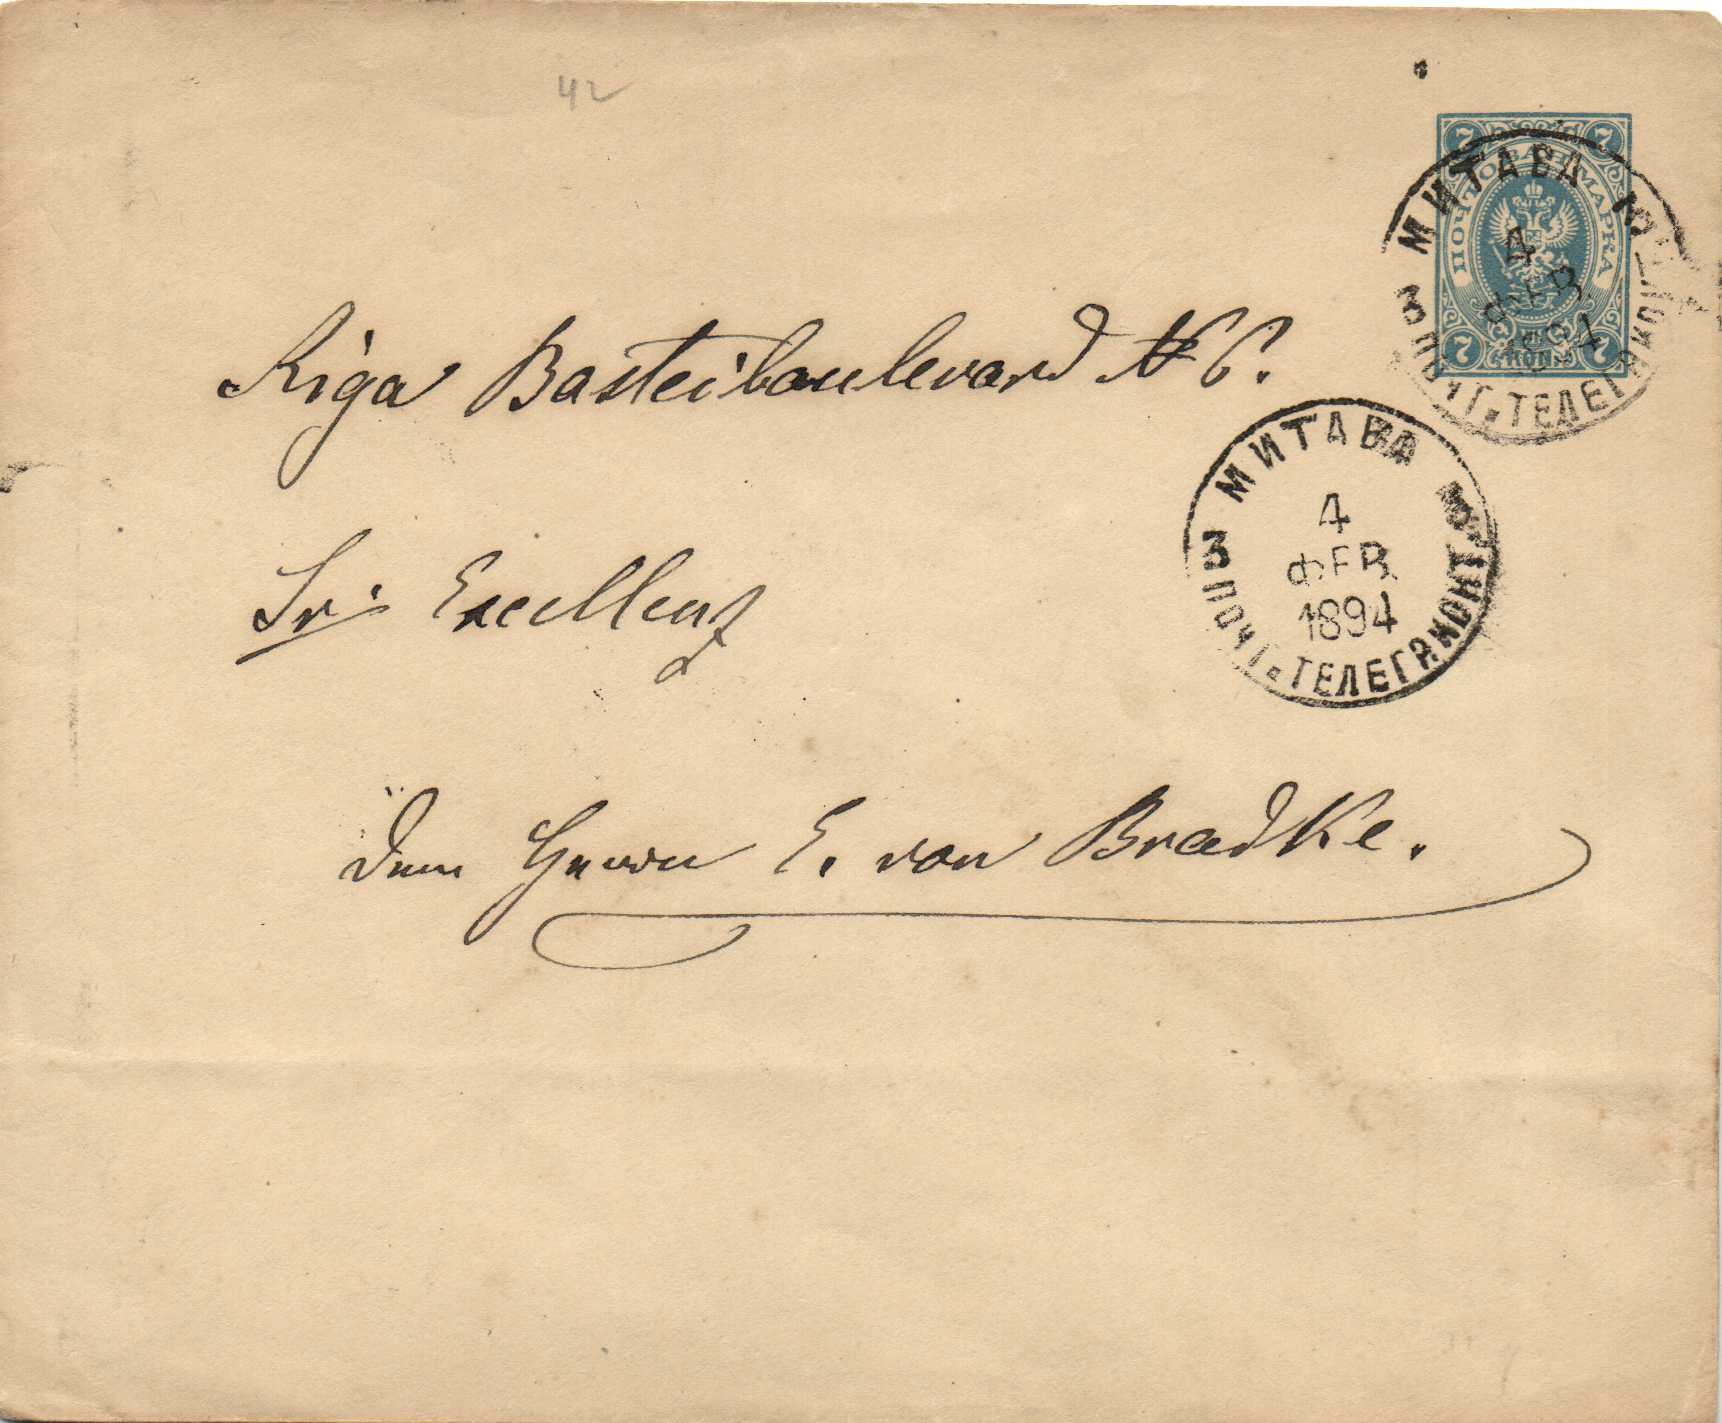 42
7 7
ПОЧТОВАЯ МАРКА
7 КОП. 7
МИТАВА
4
ФЕВ.
1894
3 ПОЧТ. ТЕЛЕГР. КОНТ. 3
Riga Basteiboulevard № 6.
МИТАВА
4
ФЕВ.
1894
3 ПОЧТ. ТЕЛЕГР. КОНТ. 3
Sr. Excellenz
Dem Herrn E. von Bradke.